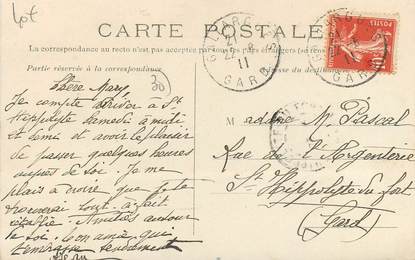 Lot
CARTE POSTALE
La correspondance au recto n'est pas acceptée par tous les pays étrangers (se rens
Partie réservée à la correspondance
Adresse du destinataire
GARD
11
GARD
30
Chère Mary
Je compte arriver à St
Hippolyte Samedi à midi
et demi et avoir le plaisir
de passer quelques heures
auprès de toi. Je me
plais à croire que je te
trouverai tout à fait
rétablie. Amitiés autour
de toi. Ton amie qui
t'embrasse tendrement
Madame M. Pascal
Rue de l'Argenterie
St Hippolyte du fort
(Gard)